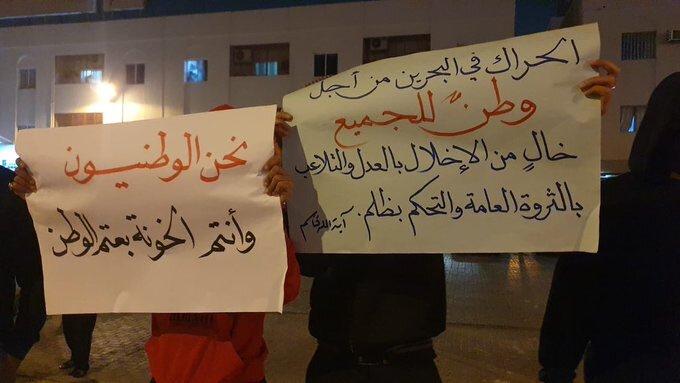 الحراك في البحرين من أجل
وطنٍ للجميع
خالٍ من الإخلال بالعدل والتلاعب
بالثروة العامة والتحكم بظلم.
آية الله قاسم
نحن الوطنيون
وأنتم الخونة بعتم الوطن